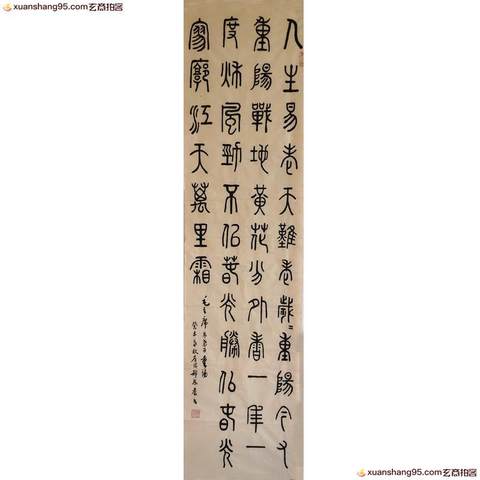 xuanshang95.com玄商拍客
xuanshang95.com玄商拍客
人生易老天難老歲〻重陽今又
重陽戰地黄花分外香一年一
度秋風勁不似春光勝似春光
寥廓江天萬里霜
毛主席采桑子重陽
xuanshang95.com玄商拍客